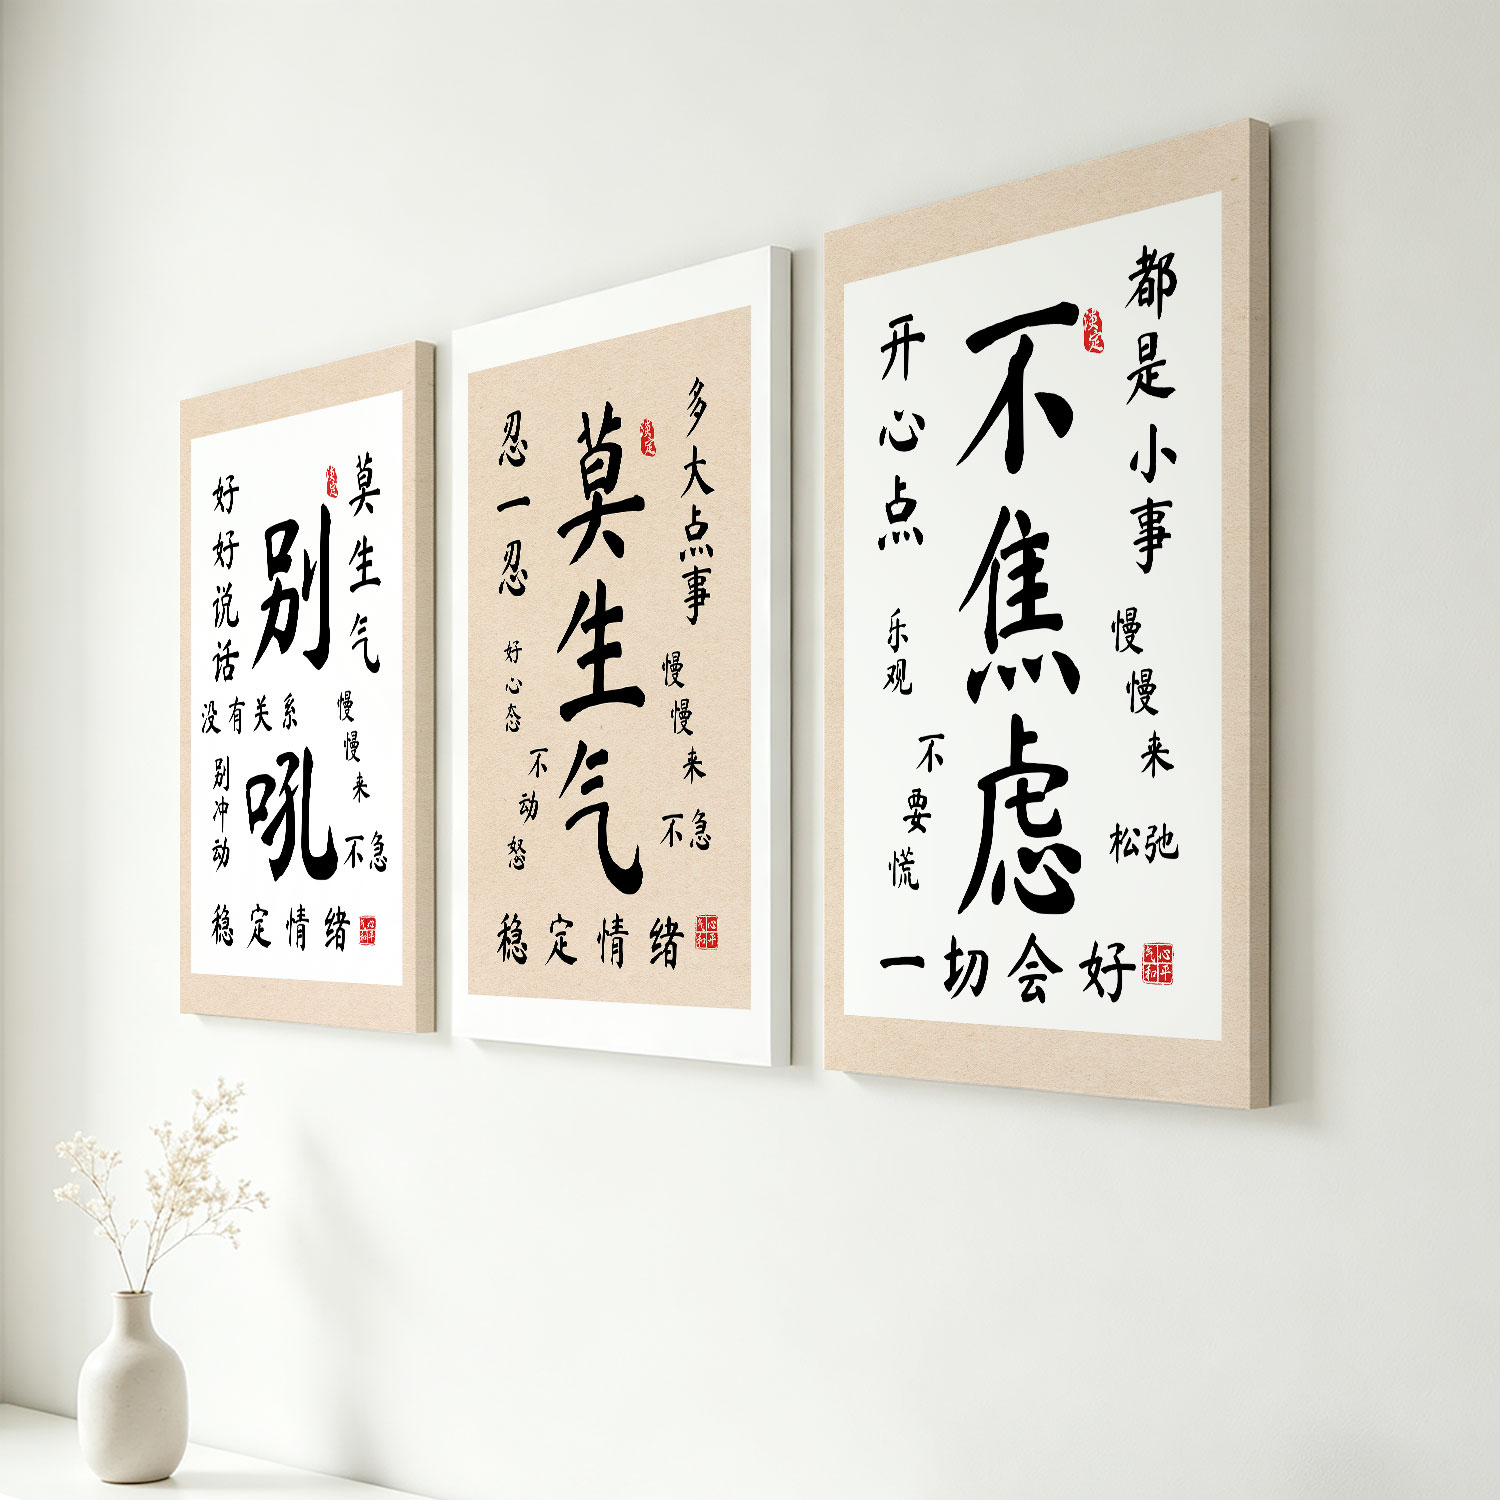 莫生气
别吼
好好说话
没有关系
慢慢来
不急
别冲动
稳定情绪
心平气和
多大点事
莫生气
忍一忍
慢慢来
不急
好心态
不动怒
稳定情绪
心平气和
都是小事
不焦虑
开心点
慢慢来
松弛
乐观
不要慌
一切会好
心平气和